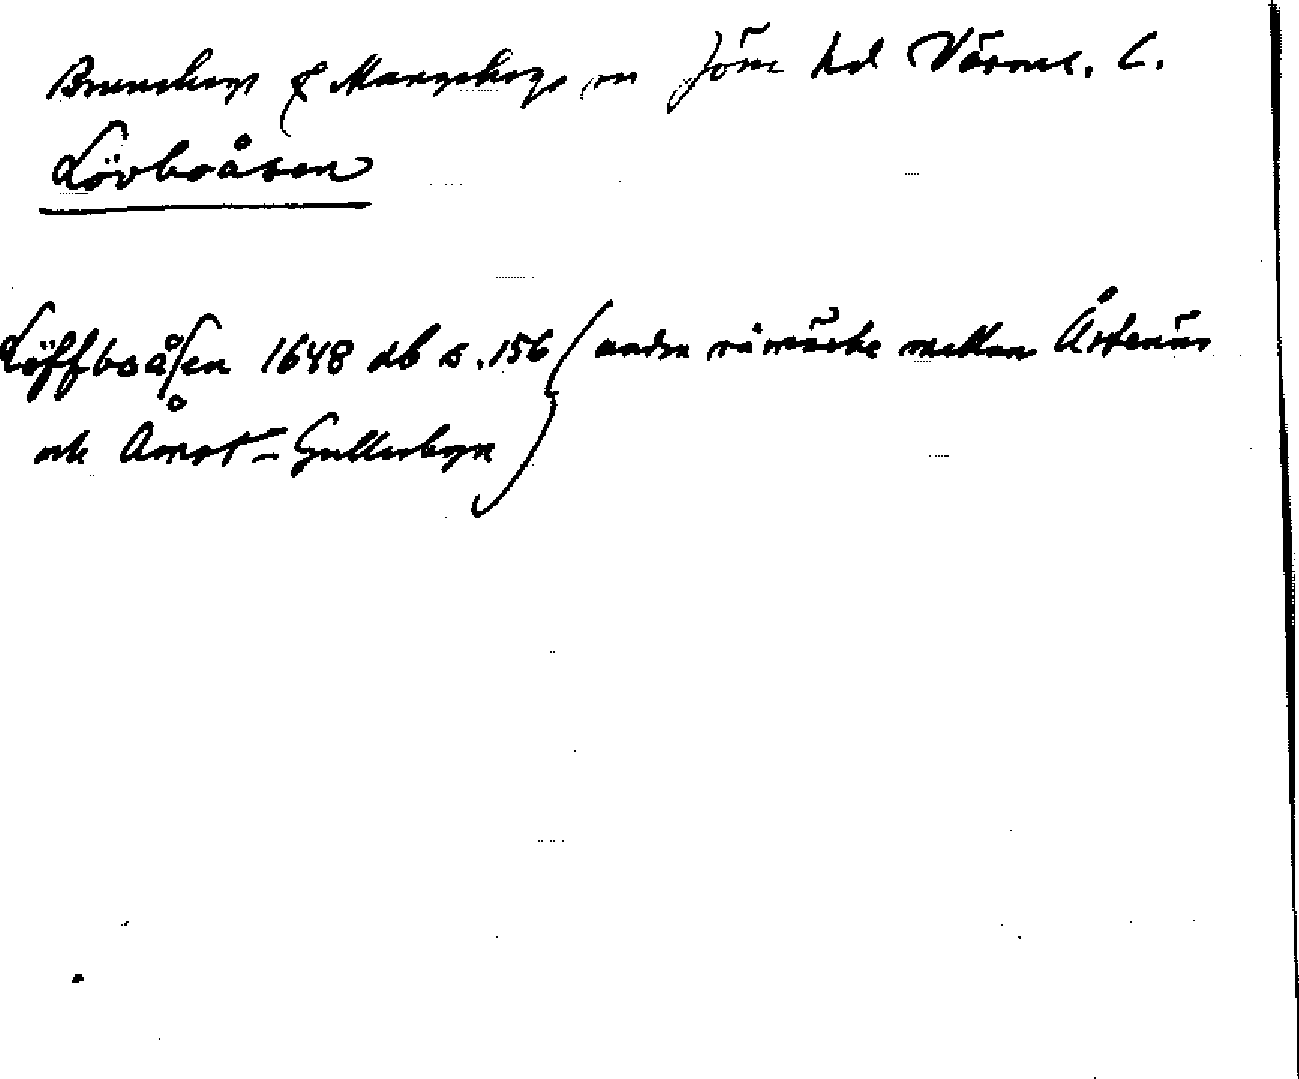 Brunskogs & Mangskogs sn Jösse hd Värml. l.
Lövboåsen
Löffboåsen 1648 db s. 156 (andra råmärke mellan Årtenäs
och Åmot-Gullerbyn)